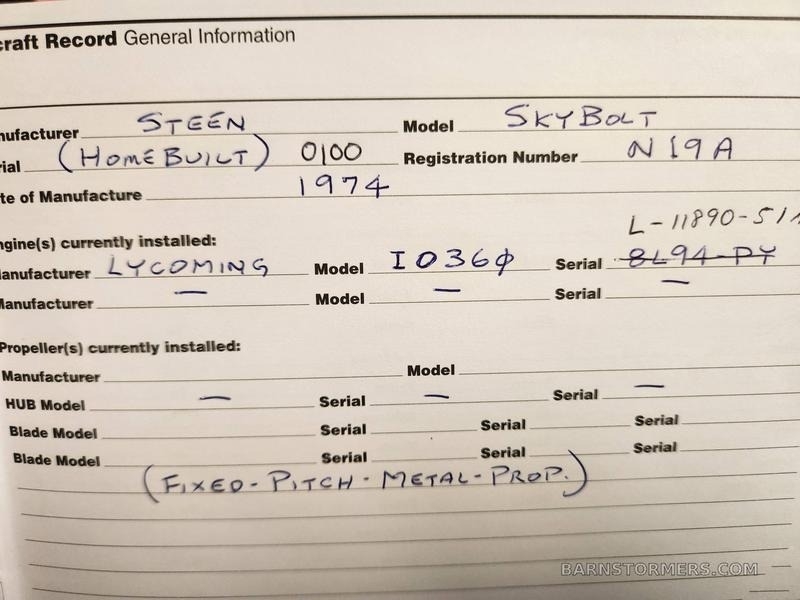 craft Record General Information
nufacturer STEEN Model SKYBOLT
rial (HOMEBUILT) 0100 Registration Number N19A
te of Manufacture 1974
ngine(s) currently installed:
L-11890-51A
anufacturer LYCOMING Model IO360 Serial 8L94-PY
Manufacturer — Model — Serial —
Propeller(s) currently installed:
Manufacturer Model
HUB Model — Serial — Serial —
Blade Model Serial Serial Serial
Blade Model Serial Serial Serial
(FIXED-PITCH-METAL-PROP.)
BARNSTORMERS.COM